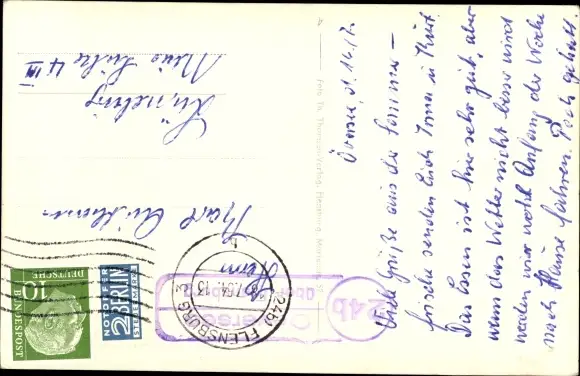 d. 14.7.
Viele Grüße aus der Sommer-
frische senden Euch Irma u. Kurt.
Das Essen ist hier sehr gut, aber
wenn das Wetter nicht besser wird
werden wir wohl Anfang der Woche
nach Hause fahren. Pech gehabt.
Foto Th. Thomsen Verlag, Flensburg
Herrn
Karl
Lüneburg
Neue Sülze 4 III
(24b) FLENSBURG
7.54.13
24b
DEUTSCHE
BUNDESPOST
10
NOTOPFER
2 BERLIN
STEUERMARKE